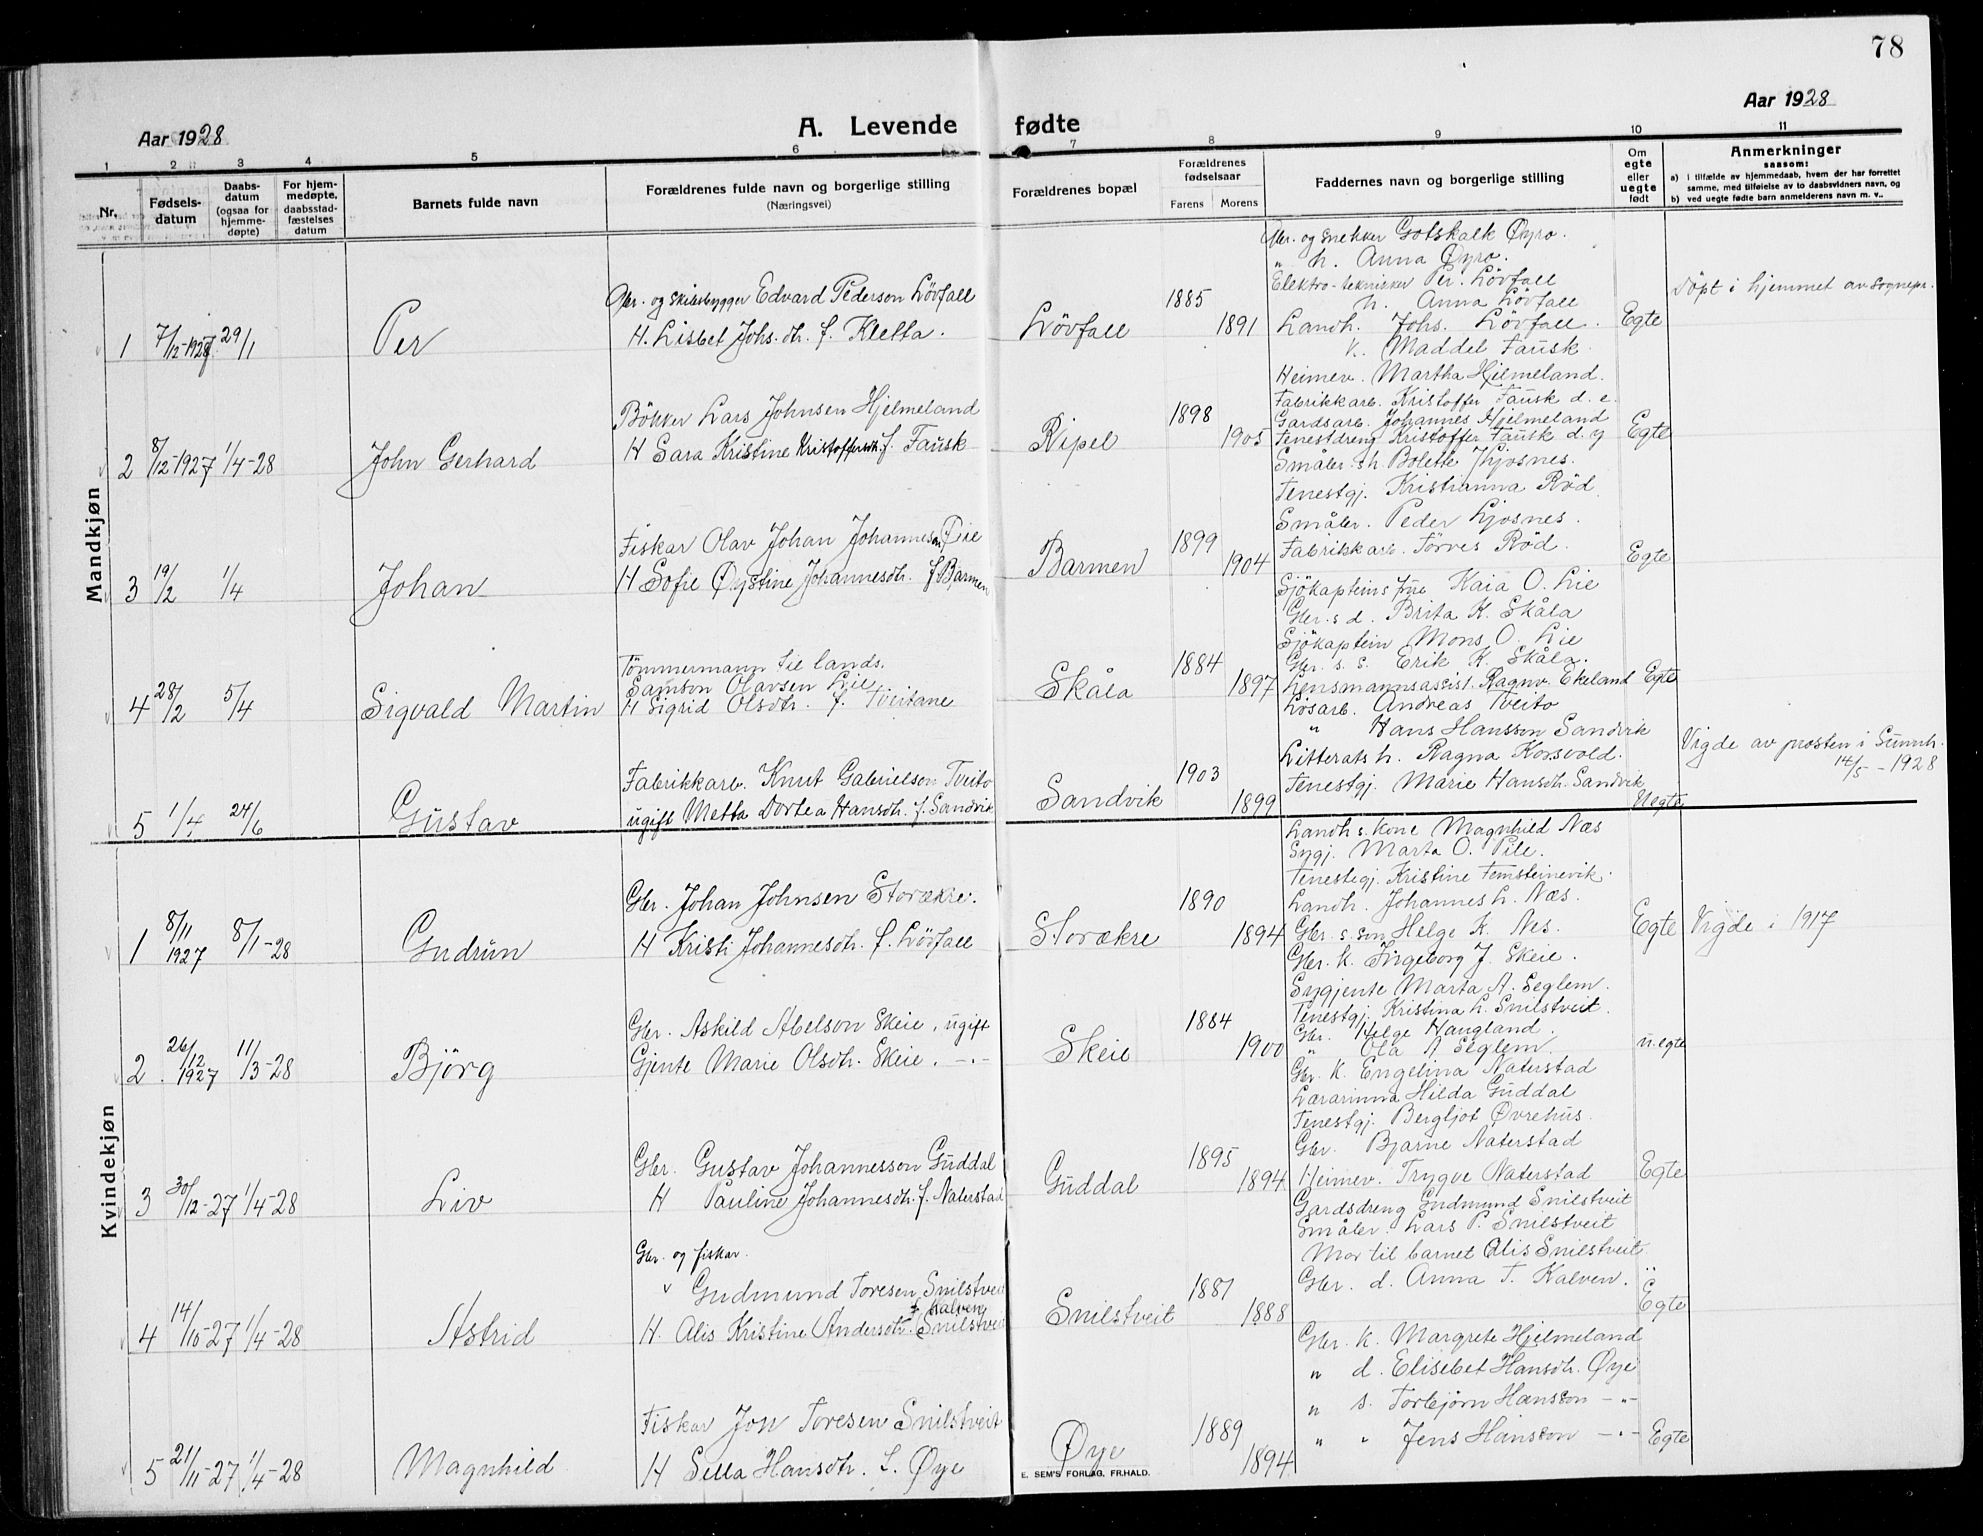 78
Aar 1928
A. Levende fødte
Aar 1928
1 2 3 4 5 6 7 8 9 10 11
Nr.
Fødsels-
datum
Daabs-
datum
(ogsaa for
hjemme-
døpte)
For hjem-
medøpte,
daabsstad-
fæstelses
datum
Barnets fulde navn
Forældrenes fulde navn og borgerlige stilling
(Næringsvei)
Forældrenes bopæl
Forældrenes
fødselsaar
Farens Morens
Faddernes navn og borgerlige stilling
Om
egte
eller
uegte
født
Anmerkninger
saasom:
a) i tilfælde av hjemmedaab, hvem der har forrettet
samme, med tilføielse av to daabsvidners navn, og
b) ved uegte fødte barn anmelderens navn m. v..
Mandkjøn
1 7/12-1927 29/1 Per
Gbr. og skibsbygger Edvard Pederson Lövfall
H. Lisbet Johs.dtr. f. Kletta.
Lövfall 1885 1891
Gbr. og snekker Gotskalk Øyro.
" h. Anna Øyro.
Elektro-tekniker Per Lövfall
h. Anna Lövfall
Landh. Johs. Lövfall.
k. Maddel Fausk
Egte
Döpt i hjemmet av sognepr.
2 8/12-1927 1/4-28 John Gerhard
Bökker Lars Johnsen Hjelmeland
H Sara Kristine Kristoffersdtr. f. Fausk
Ripel 1898 1905
Heimev. Martha Hjelmeland.
Fabrikkarb. Kristoffer Fausk d. e.
Gardsarb. Johannes Hjelmeland
Tenestdreng Kristoffer Fausk d. y
Egte
3 19/2 1/4 Johan
Fiskar Olav Johan Johannesen Pie
H Sofie Øystine Johannesdtr. f Barmen
Barmen 1899 1904
Småbr. h. Bolette Ljosnes.
Tenestgj. Kristianna Röd
Småbr. Peder Ljosnes.
Fabrikkarb. Torves Röd.
Egte
4 28/2 5/4 Sigvald Martin
Tömmermann til lands,
Samson Olavsen Lie
H Sigrid Olsdtr. f. Tveitane
Skåla 1884 1897
Sjökapteins frue Kaia O. Lie
Gbr. s d. Brita K. Skåla
Sjökaptein Mons O. Lie
Gbr. s. s. Erik K. Skåla.
Egte
5 1/4 24/6 Gustav
Fabrikkarb. Knut Gabrielson Tveito
ugift Metta Dortea Hansdtr. f. Sandvik
Sandvik 1903 1899
Lensmannsassist. Ragnv. Ekeland
Lösarb. Andreas Tveito
" Hans Hansson Sandvik
Litterats h. Ragna Korsvold.
Tenestgj. Marie Hansdtr. Sandvik
Uegte
Vigde av prosten i Sunnh.
14/5 - 1928
Kvindekjøn
1 8/11 1927 8/1-28 Gudrun
Gbr. Johan Johnsen Storækre.
H Kristi Johannesdtr. f. Lövfall
Storækre 1890 1894
Landh s. kone Magnhild Næs
Sygj. Marta O. Pile.
Tenestegj. Kristine Femsteinevik.
Landh. Johannes L. Næs.
Gbr. s. søn Helge K. Nes.
Egte
Vigde i 1917
2 26/12 1927 11/3-28 Björg
Gbr. Askild Abelson Skeie, ugift
Gjente Marie Olsdtr. Skeie, -"-
Skeie 1884 1900
Gbr. K. Ingeborg J. Skeie.
Sygjente Marta A. Seglem.
Tenestgj. Kristina L. Snilstveit.
Gbr. Helge Haugland.
" Ola A Seglem.
u.egte
3 30/12-27 1/4-28 Liv
Gbr. Gustav Johannesson Guddal
H Pauline Johannesdtr. f. Naterstad
Guddal 1895 1894
Gbr. K. Engelina Naterstad
Lærarinna Hilda Guddal
Tenestgj. Bergljot Øvrehus.
Gbr. Bjarne Naterstad
Heimev. Trygve Naterstad
Egte
4 14/10-27 1/4-28 Astrid
Gbr. og fiskar.
Gudmund Toresen Snilstveit
H. Alis Kristine Andersdtr. f. Kalven Snilstveit
Snilstveit 1881 1888
Gardsdreng Gudmund Snilstveit
Småbr. Lars P. Snilstveit
Mor til barnet Alis Snilstveit
Gbr. d. Anna T. Kalven.
Egte
5 21/11-27 1/4-28 Magnhild
Fiskar Jon Toresen Snilstveit
H Sella Hansdtr. f. Øye
Øye 1889 1894
Gbr. K. Margrete Hjelmeland
" d. Elisebet Hansdtr. Øye
" s. Torbjörn Hansson -"-
" " Jens Hansson -"-
Egte
E. SEM'S FORLAG, FR.HALD.